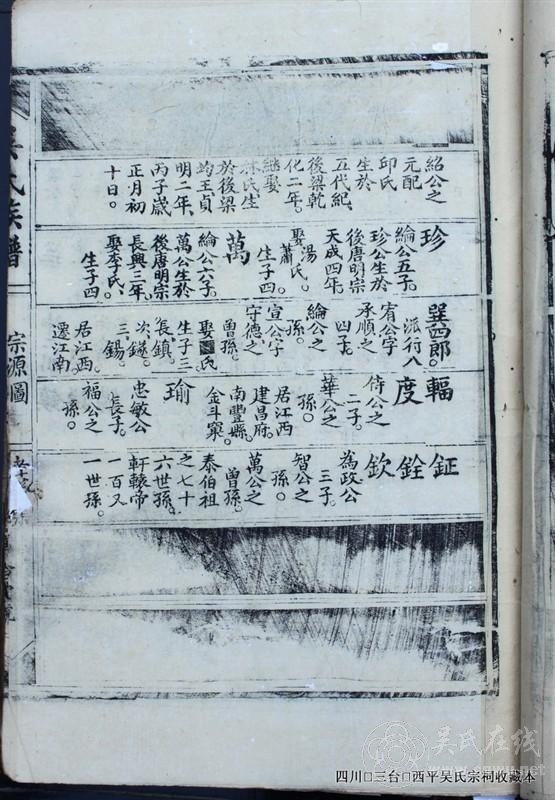 紹公之
元配
邱氏
生於
五代紀、
後梁乾
化二年。
継娶
林氏生
於後梁
均王貞
明二年、
丙子歲
正月初
十日。
珍
綸公五子。
珍公生於
後唐明宗
天成四年。
娶湯、
蕭氏。
生子四。
萬
綸公六子。
萬公生於
後唐明宗
長興三年。
娶李氏、
生子四
巽四郎。
派行八
宥公字
承順之
四子。
綸公之
孫。
宣公字
守德、之
曾孫。
娶氏
生子三
長、鎮。
次、鐩。
三、錫。
居江西。
遷江南。
輻
度
侍公之
二子。
華公之
孫。
居江西
建昌府。
南豐縣。
金斗窠
瑜
忠敏公
長子。
福公之
孫。
鉦
銓
欽
為政公
三子。
智公之
孫。
萬公之
曾孫。
泰伯祖
之七十
六世孫、
軒轅帝
一百又
一世孫。
吳氏族譜
宗源圖
吳氏在线
www.cnwu.net
四川□三台□西平吴氏宗祠收藏本